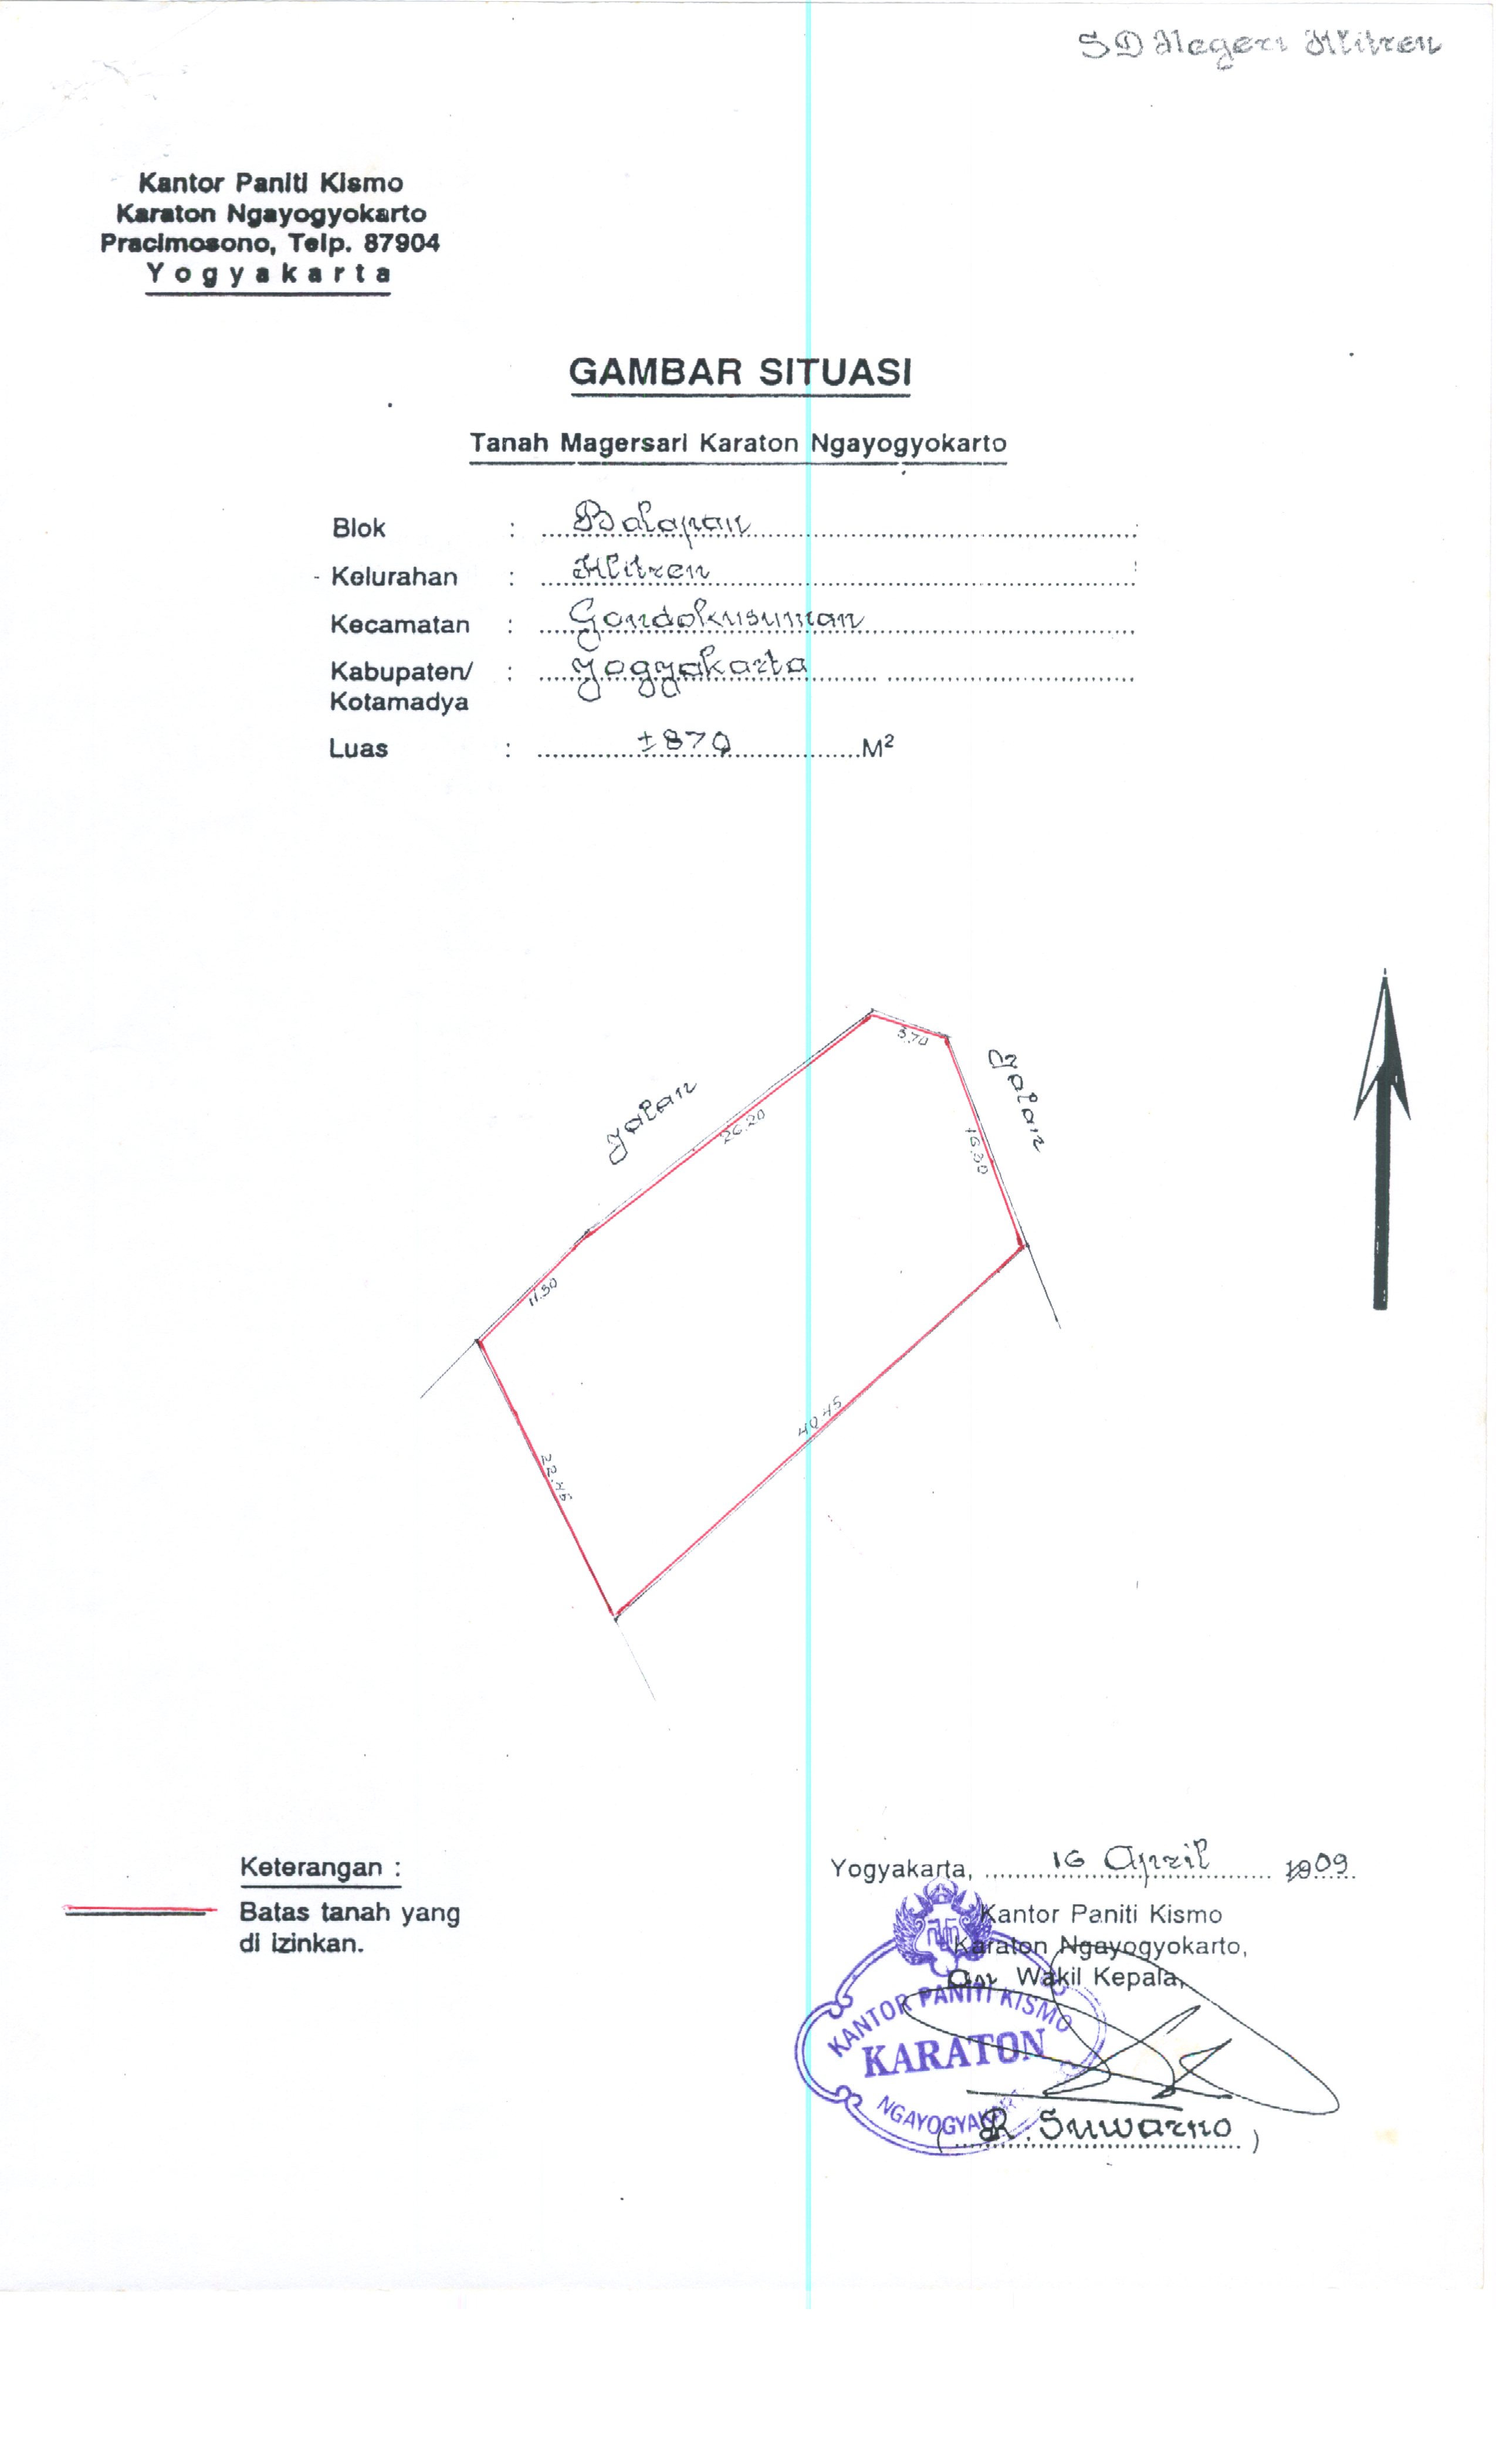 SD Negeri Klitren
Kantor Paniti Kismo
Karaton Ngayogyokarto
Pracimosono, Telp. 87904
Yogyakarta
GAMBAR SITUASI
Tanah Magersari Karaton Ngayogyokarto
Blok : Balapan
- Kelurahan : Klitren
Kecamatan : Gondokusuman
Kabupaten/ : Yogyakarta
Kotamadya
Luas : ±870 M²
3.70
Jalan
Jalan
26.20
16.30
11.50
40.45
22.45
Keterangan :
Batas tanah yang
di izinkan.
Yogyakarta, 16 April 2009
Kantor Paniti Kismo
Karaton Ngayogyokarto,
An Wakil Kepala,
KANTOR PANITI KISMO
KARATON
NGAYOGYAKARTA
( R. Suwarno )